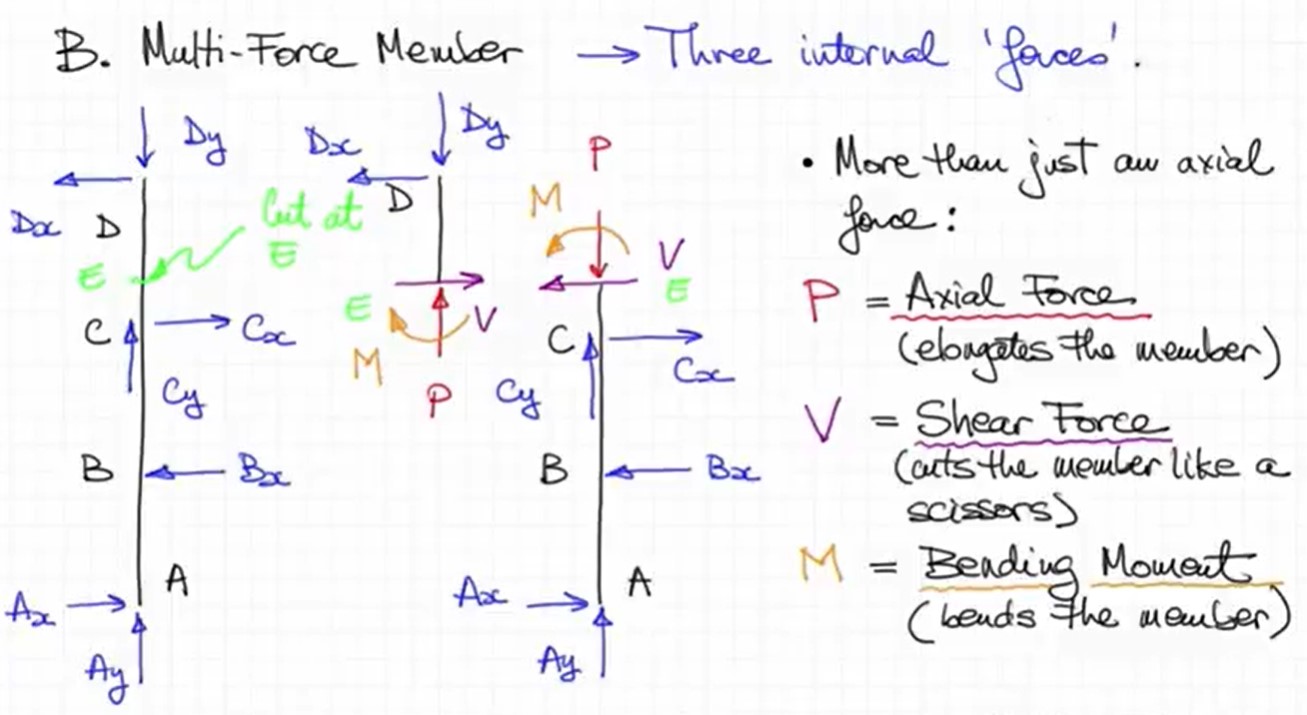 B. Multi-Force Member → Three internal 'forces'.
Dy
Dx
D
Cut at
E
E
C
Cx
Cy
B
Bx
A
Ax
Ay
Dy
Dx
D
E
V
M
P
P
M
V
E
C
Cx
Cy
B
Bx
A
Ax
Ay
• More than just an axial
force:
P = Axial Force
(elongates the member)
V = Shear Force
(cuts the member like a
scissors)
M = Bending Moment
(bends the member)